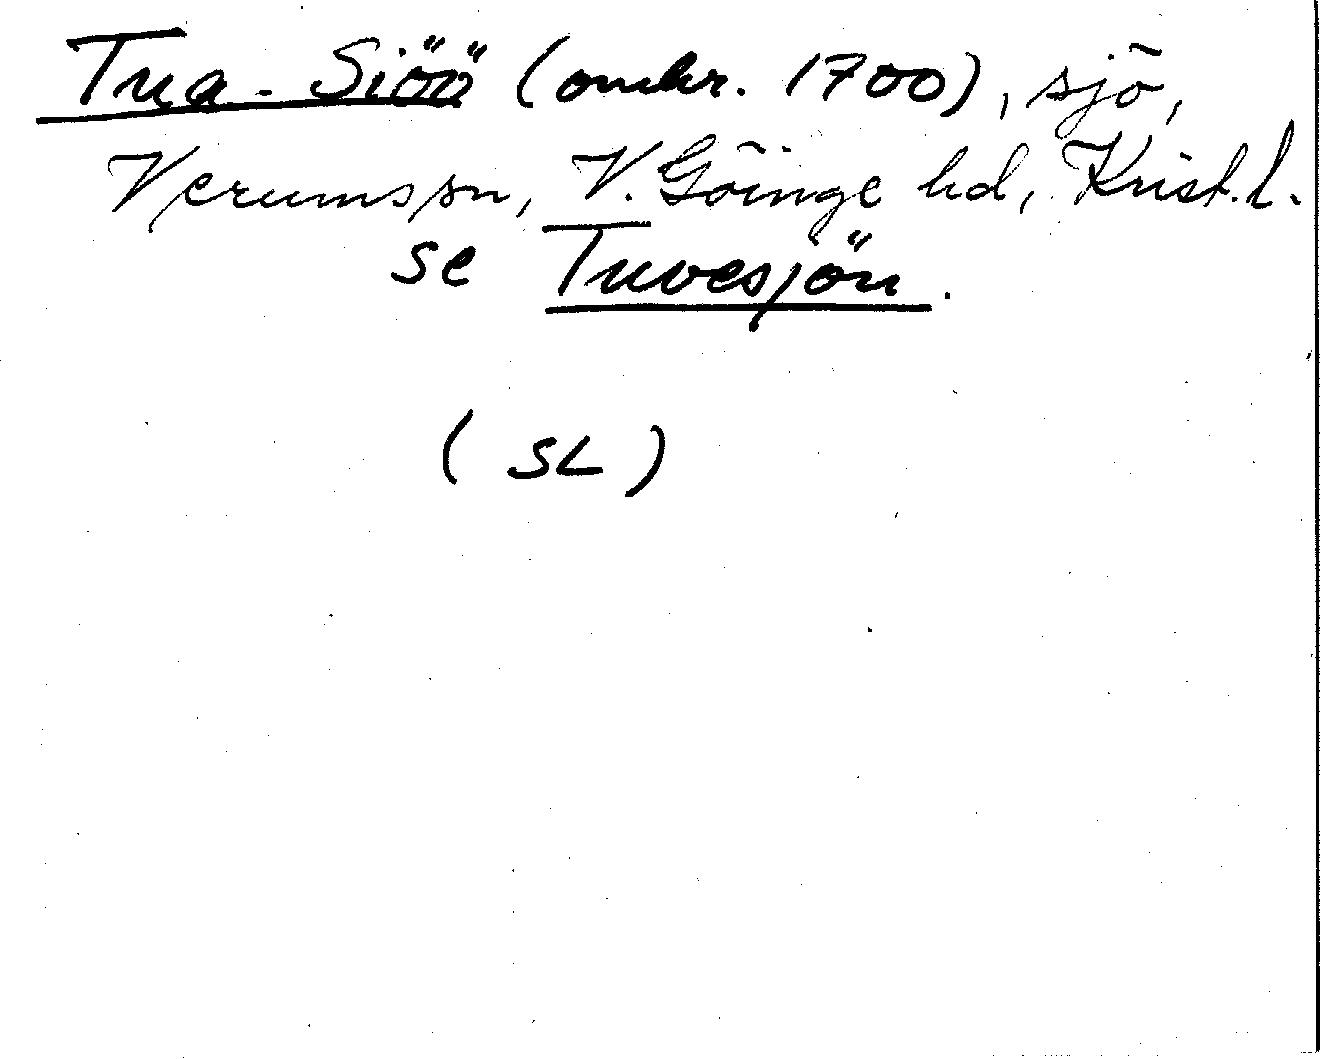 Tua-Siöö (omkr. 1700), sjö,
Verums sn, V. Göinge hd, Krist. l.
se Tuvesjön.
(SL)